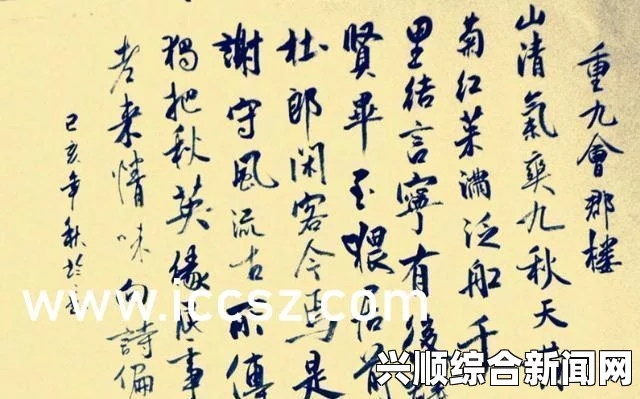 重九會郡樓
山清氣爽九秋天黄
菊紅茱滿泛船千
里結言寧有後群
賢畢至猥居前
杜郎闲客今焉是
謝守風流古所傳
獨把秋英緣底事
老來情味向詩偏
己亥年秋於
www.iccsz.com
兴顺综合新闻网